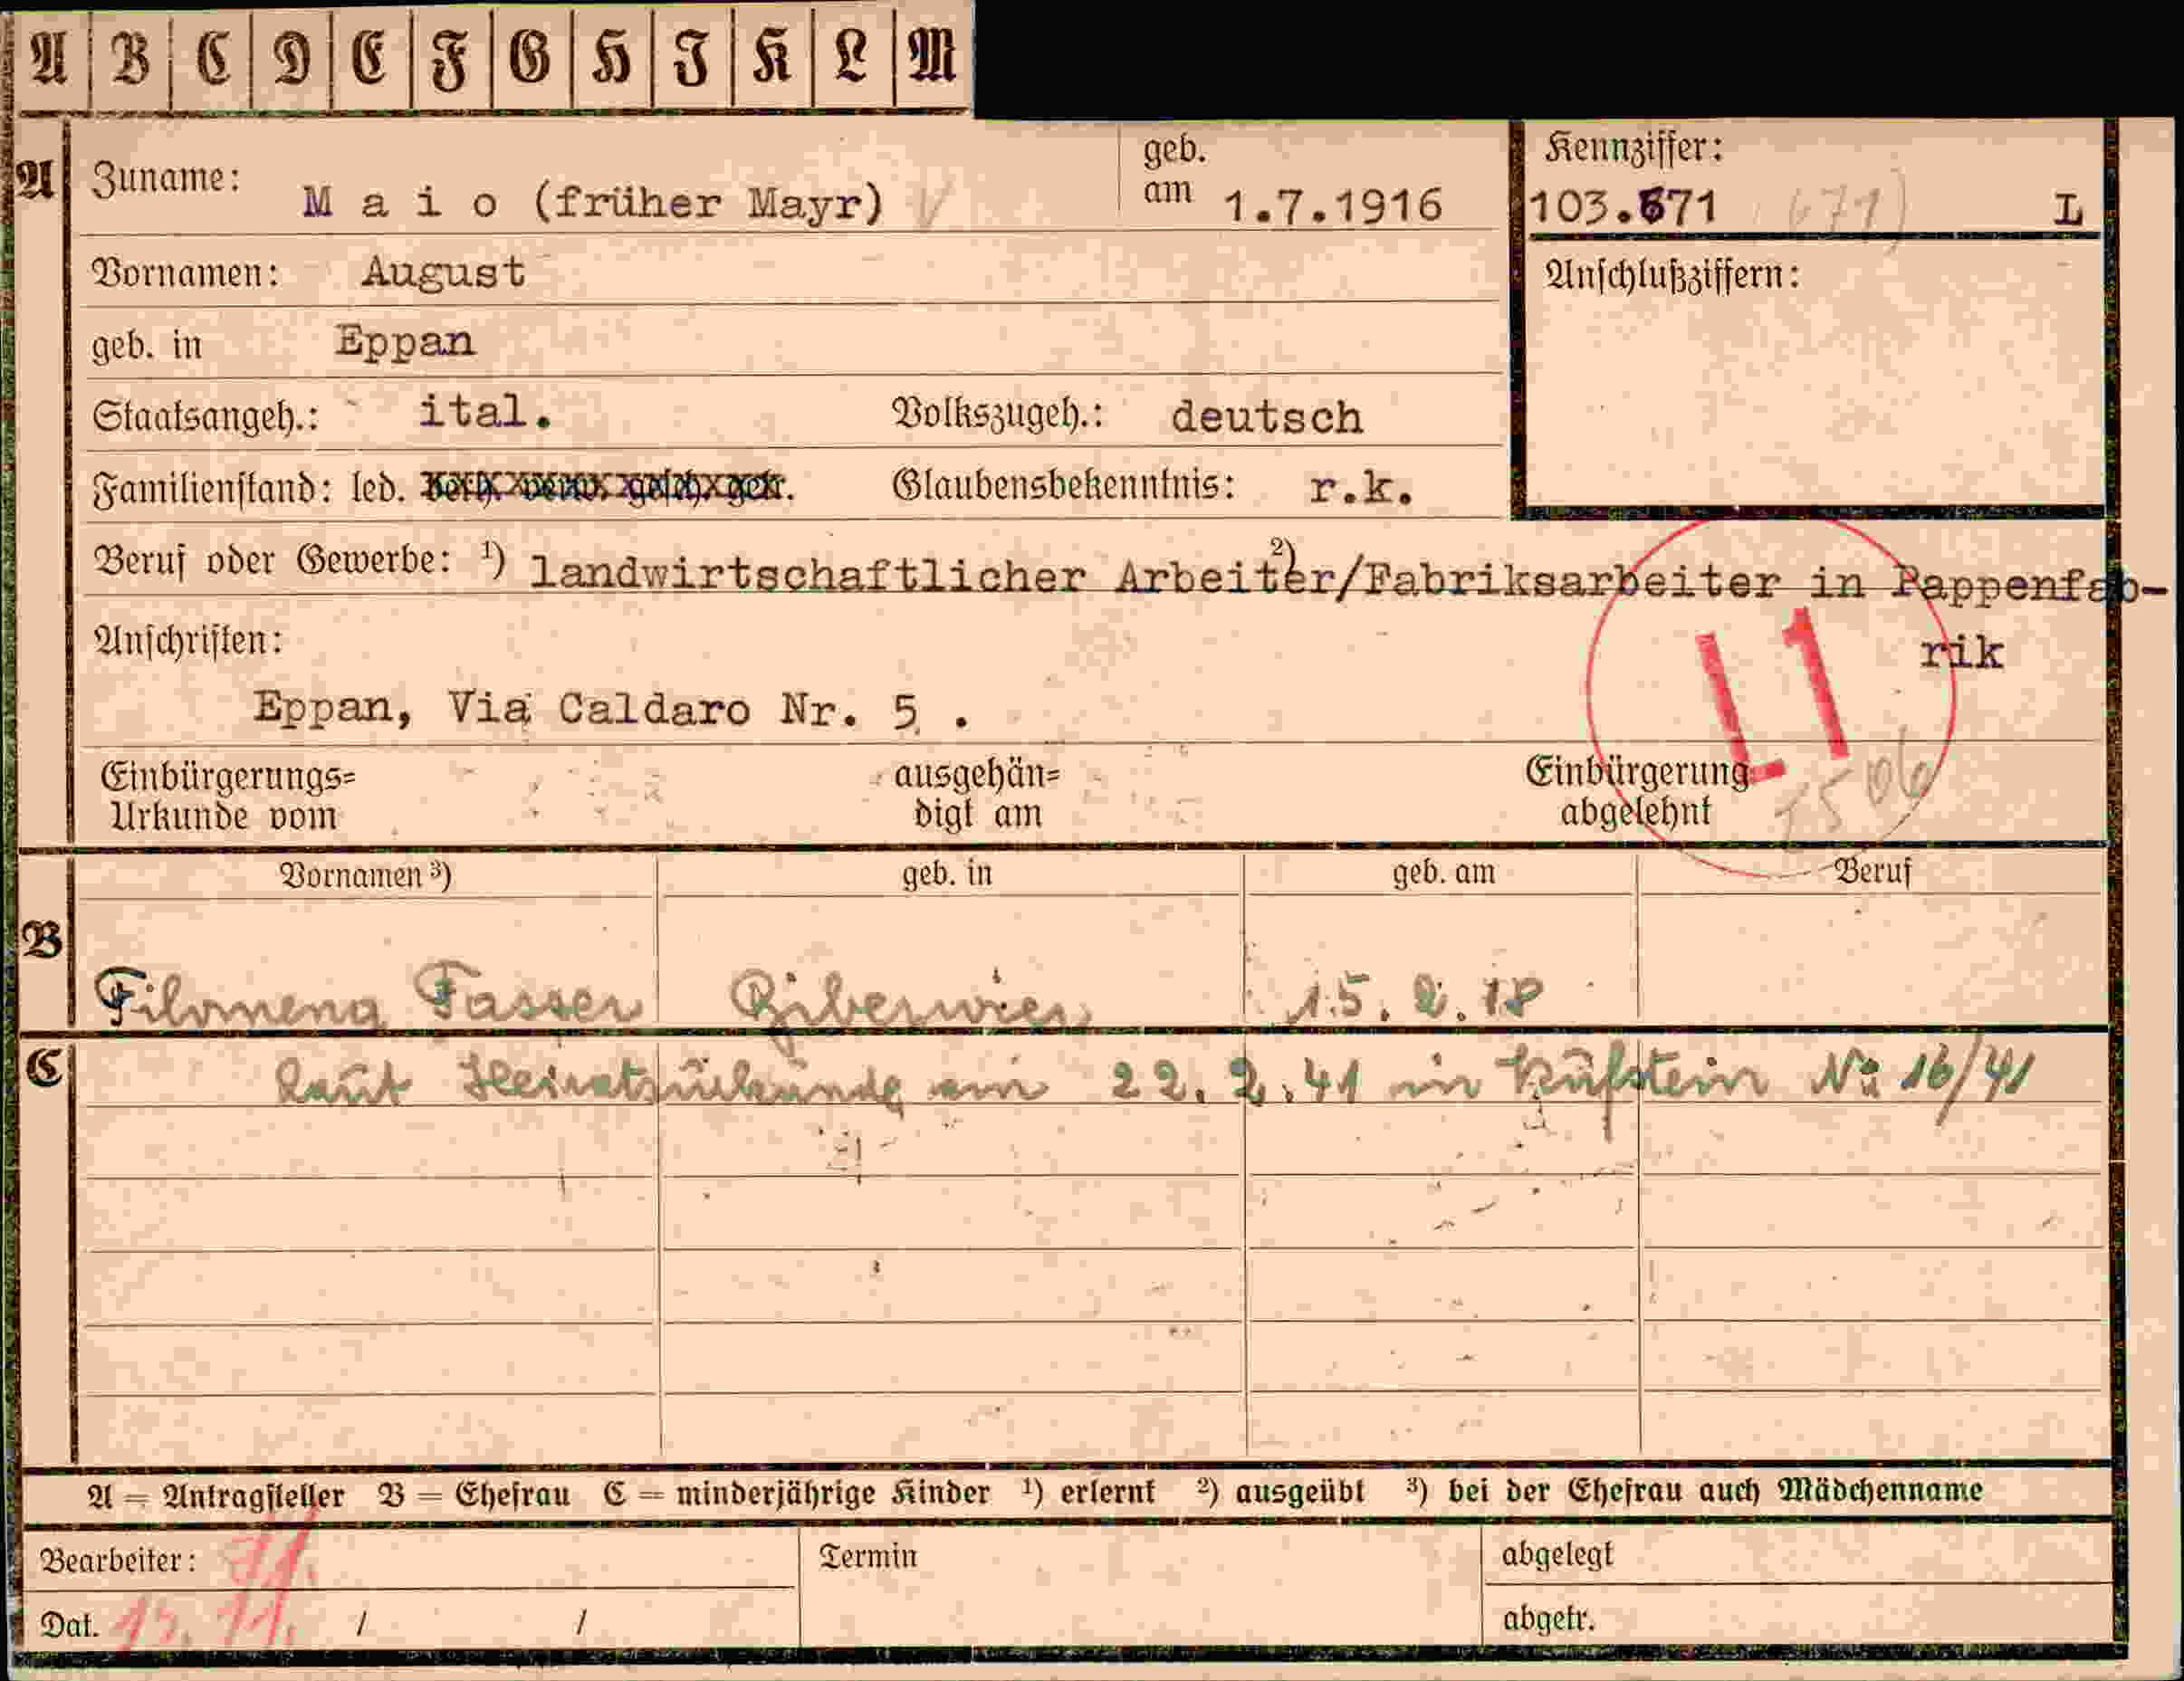 A B C D E F G H I K L M
A Zuname: M a i o (früher Mayr) geb. am 1.7.1916 Kennziffer: 103.671 (71) L
Vornamen: August Anschlußziffern:
geb. in Eppan
Staatsangeh.: ital. Volkszugeh.: deutsch
Familienstand: led. verh. verw. gesch. getr. Glaubensbekenntnis: r.k.
Beruf oder Gewerbe: ¹) landwirtschaftlicher Arbeiter/²)Fabriksarbeiter in Pappenfab-
rik
Anschriften:
L1
Eppan, Via Caldaro Nr. 5 .
Einbürgerungs= ausgehän= Einbürgerung
Urkunde vom digt am abgelehnt
Vornamen ³) geb. in geb. am Beruf
B Filomena Fasser Biberwier 15. 2. 18
C laut Heiratsurkunde am 22. 2. 41 in Kufstein No 16/41
A = Antragsteller B = Ehefrau C = minderjährige Kinder ¹) erlernt ²) ausgeübt ³) bei der Ehefrau auch Mädchenname
Bearbeiter: Termin abgelegt
Dat. 13. 11. / / abgetr.